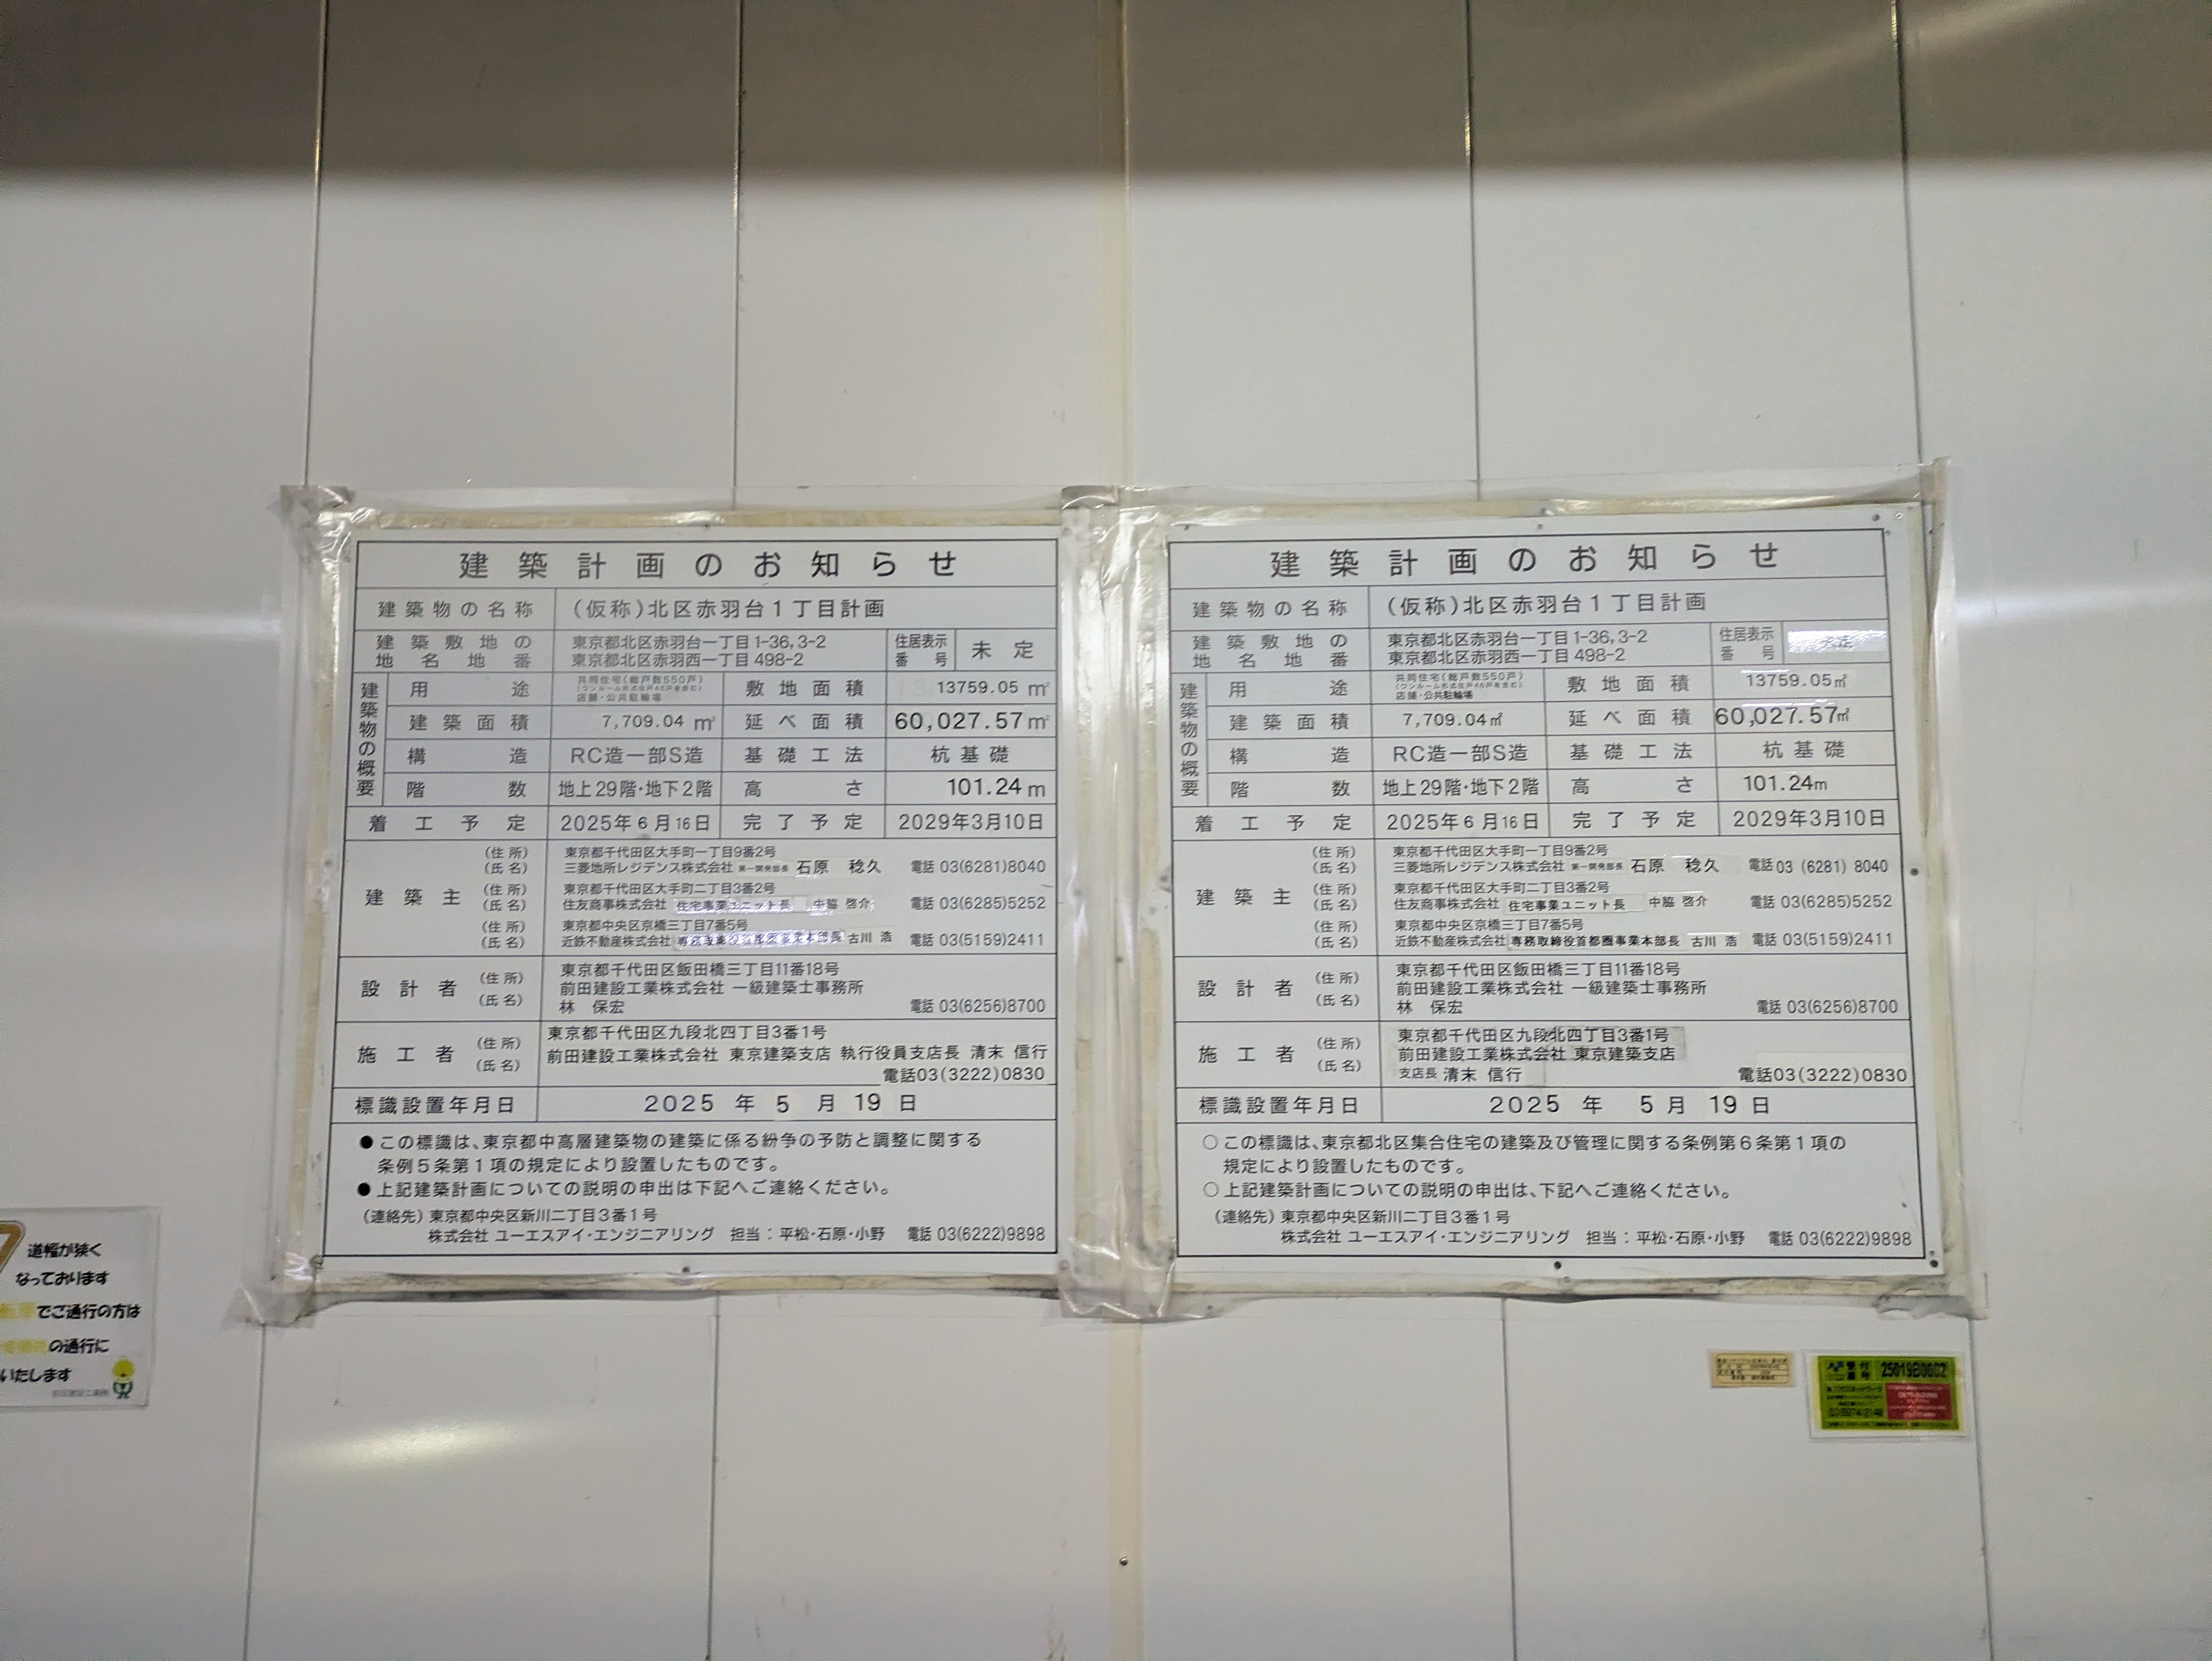 建築計画のお知らせ
建築物の名称 (仮称)北区赤羽台1丁目計画
建築敷地の地名地番 東京都北区赤羽台一丁目1-36,3-2
東京都北区赤羽西一丁目498-2
住居表示番号 未定
建築物の概要
用途 共同住宅(総戸数550戸)
(ワンルーム形式住戸46戸を含む)
店舗・公共駐輪場
敷地面積 13759.05㎡
建築面積 7,709.04㎡ 延べ面積 60,027.57㎡
構造 RC造一部S造 基礎工法 杭基礎
階数 地上29階・地下2階 高さ 101.24m
着工予定 2025年6月16日 完了予定 2029年3月10日
建築主
(住所) 東京都千代田区大手町一丁目9番2号
(氏名) 三菱地所レジデンス株式会社 第一開発部長 石原 稔久 電話 03(6281)8040
(住所) 東京都千代田区大手町二丁目3番2号
(氏名) 住友商事株式会社 住宅事業ユニット長 中脇 啓介 電話 03(6285)5252
(住所) 東京都中央区京橋三丁目7番5号
(氏名) 近鉄不動産株式会社 専務取締役首都圏事業本部長 古川 浩 電話 03(5159)2411
設計者
(住所) 東京都千代田区飯田橋三丁目11番18号
(氏名) 前田建設工業株式会社 一級建築士事務所
林 保宏 電話 03(6256)8700
施工者
(住所) 東京都千代田区九段北四丁目3番1号
(氏名) 前田建設工業株式会社 東京建築支店 執行役員支店長 清末 信行
電話03(3222)0830
標識設置年月日 2025年5月19日
●この標識は、東京都中高層建築物の建築に係る紛争の予防と調整に関する
条例5条第1項の規定により設置したものです。
●上記建築計画についての説明の申出は下記へご連絡ください。
(連絡先) 東京都中央区新川二丁目3番1号
株式会社 ユーエスアイ・エンジニアリング 担当:平松・石原・小野 電話 03(6222)9898
建築計画のお知らせ
建築物の名称 (仮称)北区赤羽台1丁目計画
建築敷地の地名地番 東京都北区赤羽台一丁目1-36,3-2
東京都北区赤羽西一丁目498-2
住居表示番号 未定
建築物の概要
用途 共同住宅(総戸数550戸)
(ワンルーム形式住戸46戸を含む)
店舗・公共駐輪場
敷地面積 13759.05㎡
建築面積 7,709.04㎡ 延べ面積 60,027.57㎡
構造 RC造一部S造 基礎工法 杭基礎
階数 地上29階・地下2階 高さ 101.24m
着工予定 2025年6月16日 完了予定 2029年3月10日
建築主
(住所) 東京都千代田区大手町一丁目9番2号
(氏名) 三菱地所レジデンス株式会社 第一開発部長 石原 稔久 電話03 (6281) 8040
(住所) 東京都千代田区大手町二丁目3番2号
(氏名) 住友商事株式会社 住宅事業ユニット長 中脇 啓介 電話 03(6285)5252
(住所) 東京都中央区京橋三丁目7番5号
(氏名) 近鉄不動産株式会社 専務取締役首都圏事業本部長 古川 浩 電話 03(5159)2411
設計者
(住所) 東京都千代田区飯田橋三丁目11番18号
(氏名) 前田建設工業株式会社 一級建築士事務所
林 保宏 電話 03(6256)8700
施工者
(住所) 東京都千代田区九段北四丁目3番1号
(氏名) 前田建設工業株式会社 東京建築支店
支店長 清末 信行 電話03(3222)0830
標識設置年月日 2025年5月19日
○この標識は、東京都北区集合住宅の建築及び管理に関する条例第6条第1項の
規定により設置したものです。
○上記建築計画についての説明の申出は、下記へご連絡ください。
(連絡先) 東京都中央区新川二丁目3番1号
株式会社 ユーエスアイ・エンジニアリング 担当:平松・石原・小野 電話 03(6222)9898
道幅が狭く
なっております
でご通行の方は
の通行に
いたします
受付番号 25019B0602